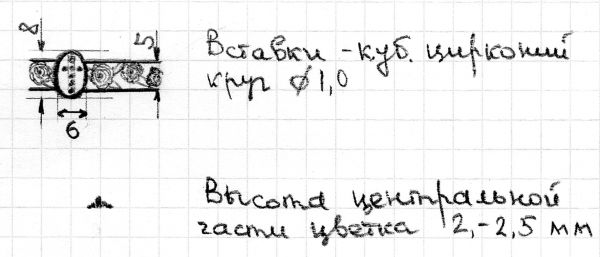 8
5
6
Вставки - куб. цирконий
круг ⌀1,0
Высота центральной
части цветка 2,-2,5 мм